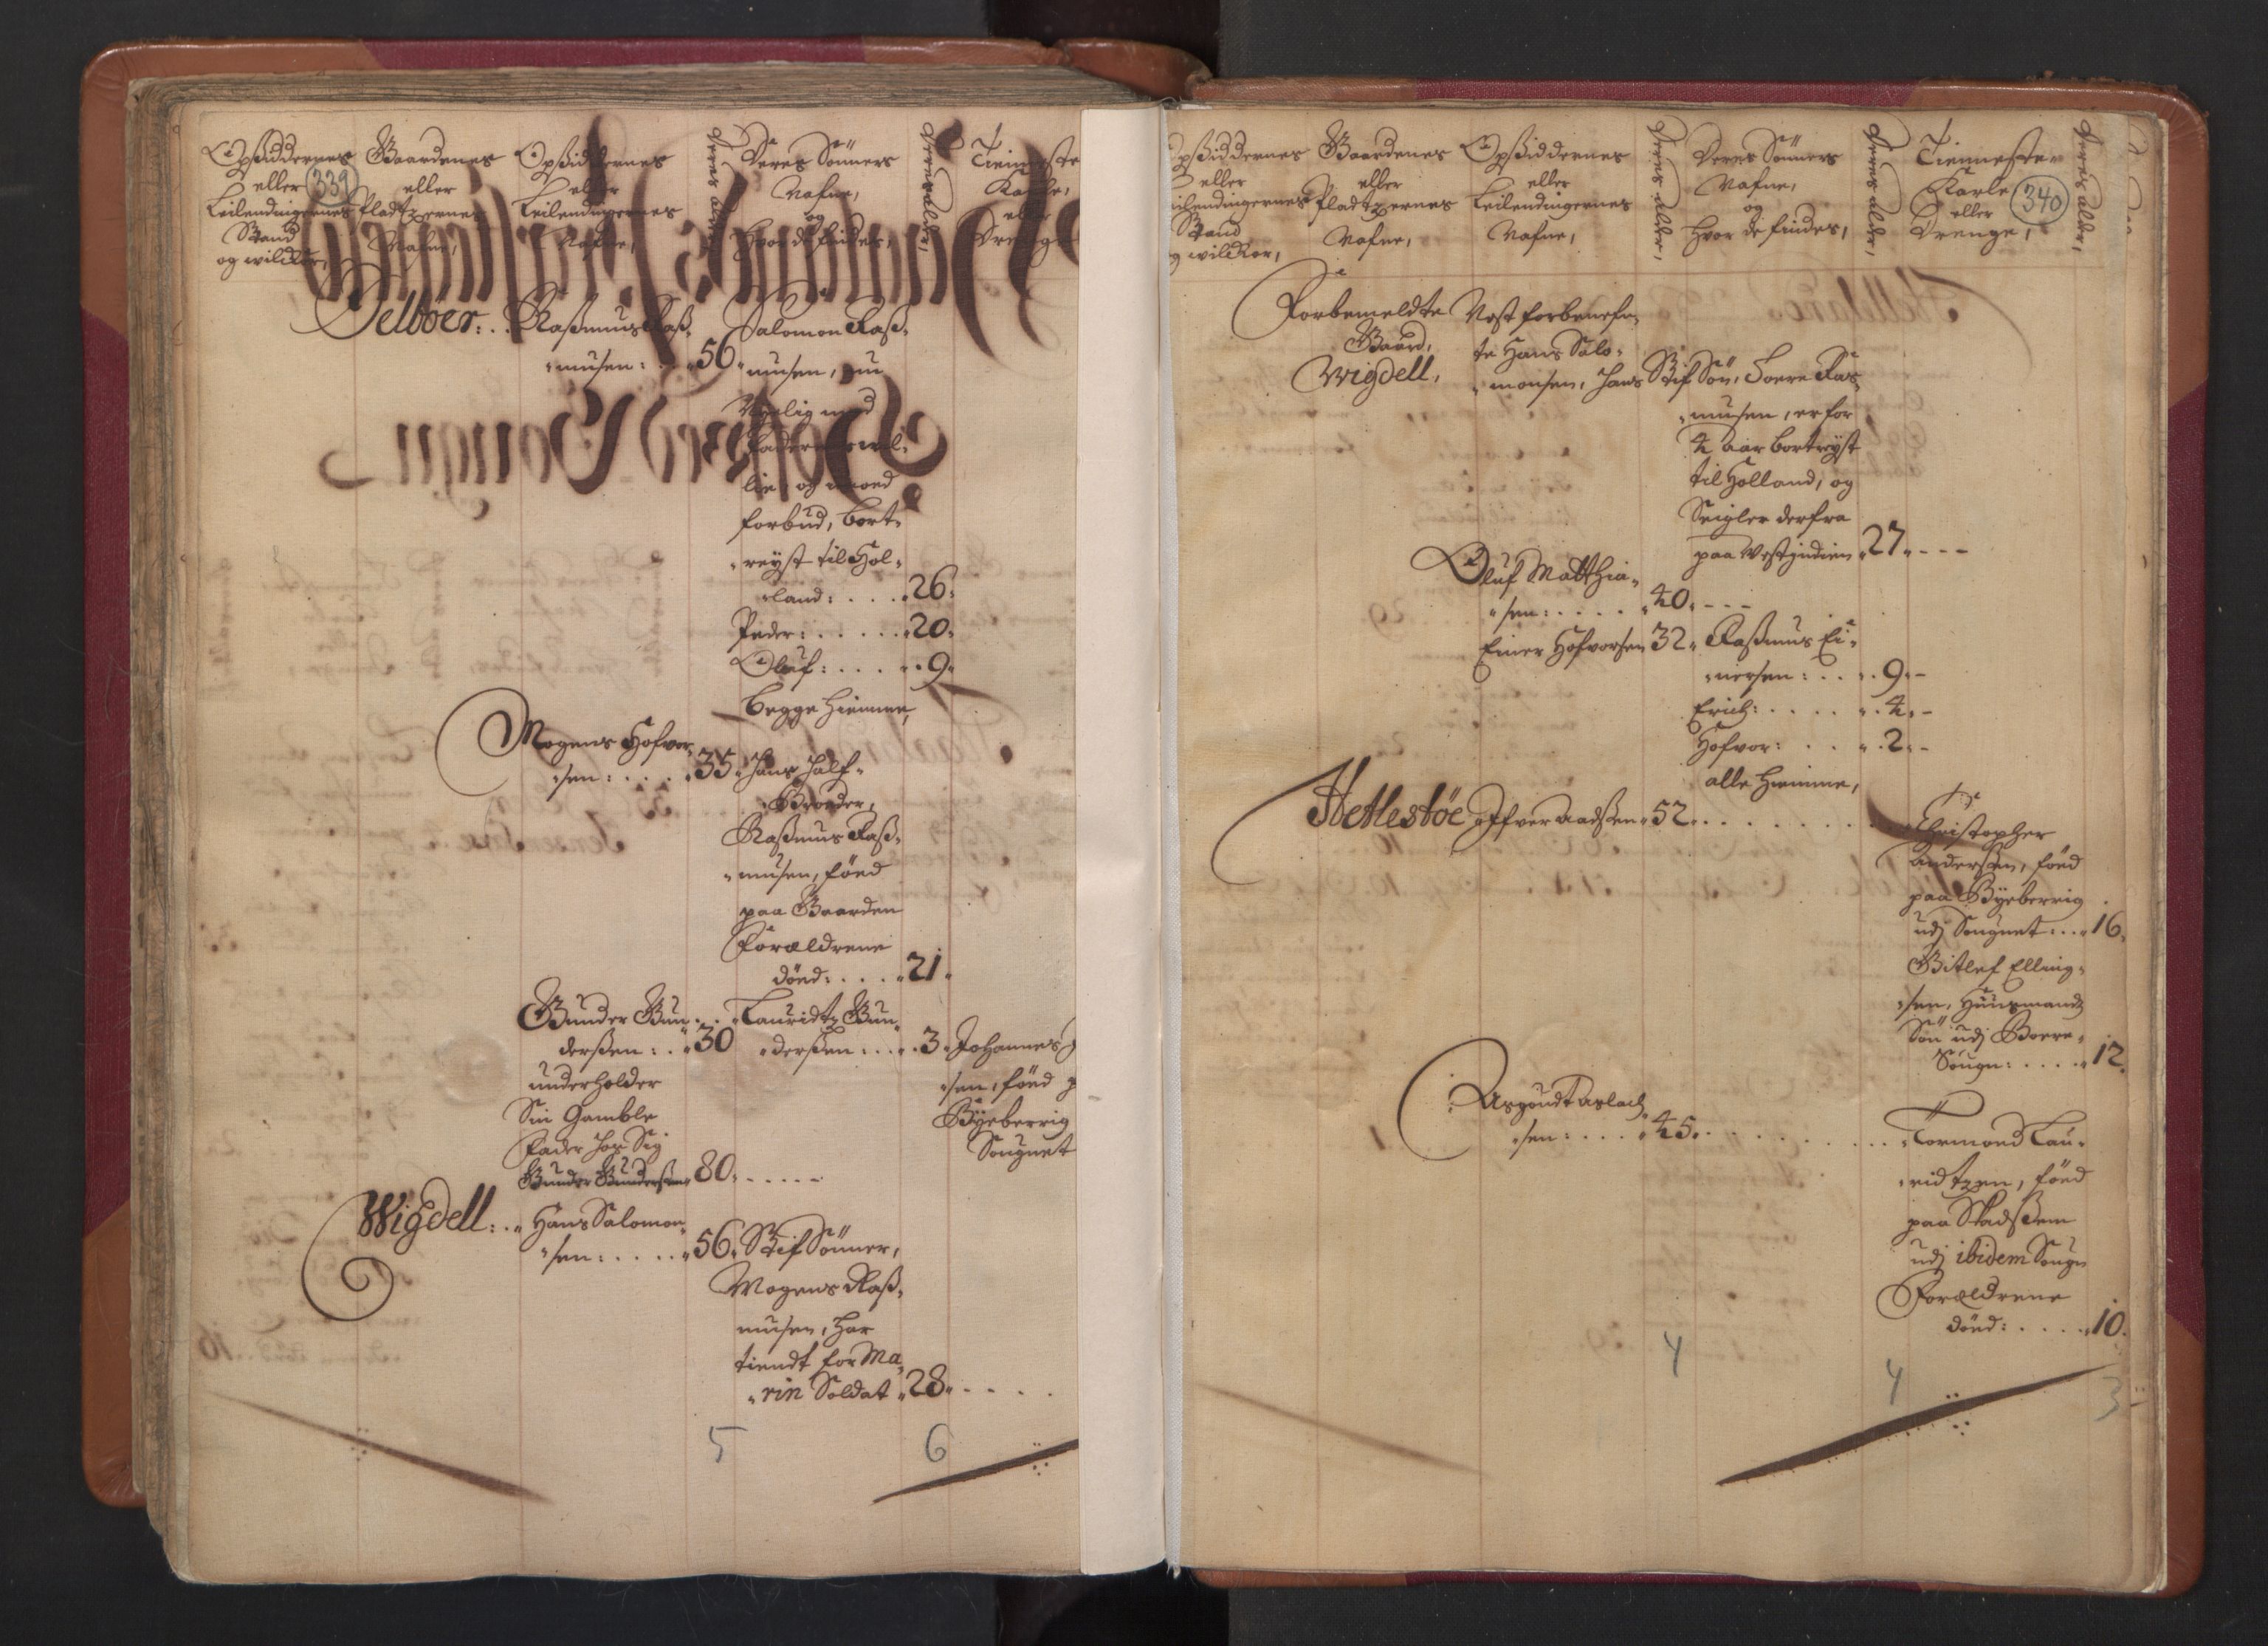 Opsiddernes
eller
Leilendingernes
Stand
og wilckor,
339
Gaardenes
eller
Pladtzernes
Nafne,
Opsiddernes
eller
Leilendingernes
Nafne,
Deres alder,
Deres Sönners
Nafne,
og
Hvor de findes,
Deres alder,
Tienneste
Karle,
eller
Drenge
Selböer: . . Rasmus Ras-
musen: . . 56.
Salomon Ras-
musen, nu
Nylig med
Faderens wil-
lie, og imod
forbud, bort-
reyst til Hol-
land: . . . 26.
Peder: . . . . . 20.
Oluf: . . . . . 9.
begge hiemme,
Mogens Hofvor-
sen: . . . . 35.
hans half-
Broder,
Rasmus Ras-
musen, föed
paa Gaarden
Forældrene
döed: . . . . 21.
Gunder Gun-
dersen: . . 30
underholder
Sin Gamble
Fader hos Sig
Gunder Gundersen 80. . . . . .
Lauridtz Gun-
dersen: . . . . 3.
Johannes
sen, föed p
Byeberrig
Sougnet
Wigdell: . . Hans Salomon-
sen: . . . . . 56.
Stif Sönner,
Mogens Ras-
musen, har
tiendt for Ma-
rin Soldat 28. . . . .
5
6
Opsiddernes
eller
Leilendingernes
Stand
og wilckor,
Gaardenes
eller
Pladtzernes
Nafne,
Opsiddernes
eller
Leilendingernes
Nafne,
Deres alder,
Deres Sönners
Nafne,
og
Hvor de findes,
Deres alder,
Tienneste
Karle
eller
Drenge,
340
Deres alder,
Forbemeldte
Gaard,
Wigdell,
Nest forbenefn-
te Hans Salo-
monsen, hans Stif Sön, Soere Ras-
musen, er for
4 aar bortreyst
til Holland, og
Seigler derfra
paa Westindien 27. - - -
Oluf Matthia-
sen: . . . . 40. - - -
Einer Hofvorsen 32.
Rasmus Ei-
nersen: . . . 9. -
Erich: . . . . . 4. -
Hofvor: . . . 2. -
alle hiemme,
Hetlestöe Ifver Aadsen 52. . . . . . . .
Christopher
Andersen, föed
paa Byeberrig
udj Sougnet: . . . 16.
Gitlef Elling-
sen, Huusmands
Sön udj Boere-
Sougn: . . . . 12.
Asgoudt Aslach-
sen: . . . . 45. . . . . . . . .
Tormoed Lau-
ridtzen, föed
paa Stadsem
udj ibidem Sougn
Forældrene
döed: . . . . . 10.
4
4
3